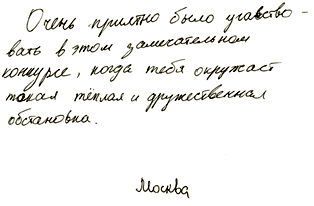 Очень приятно было участво-
вать в этом замечательном
конкурсе, когда тебя окружает
такая тёплая и дружественная
обстановка.
Москва